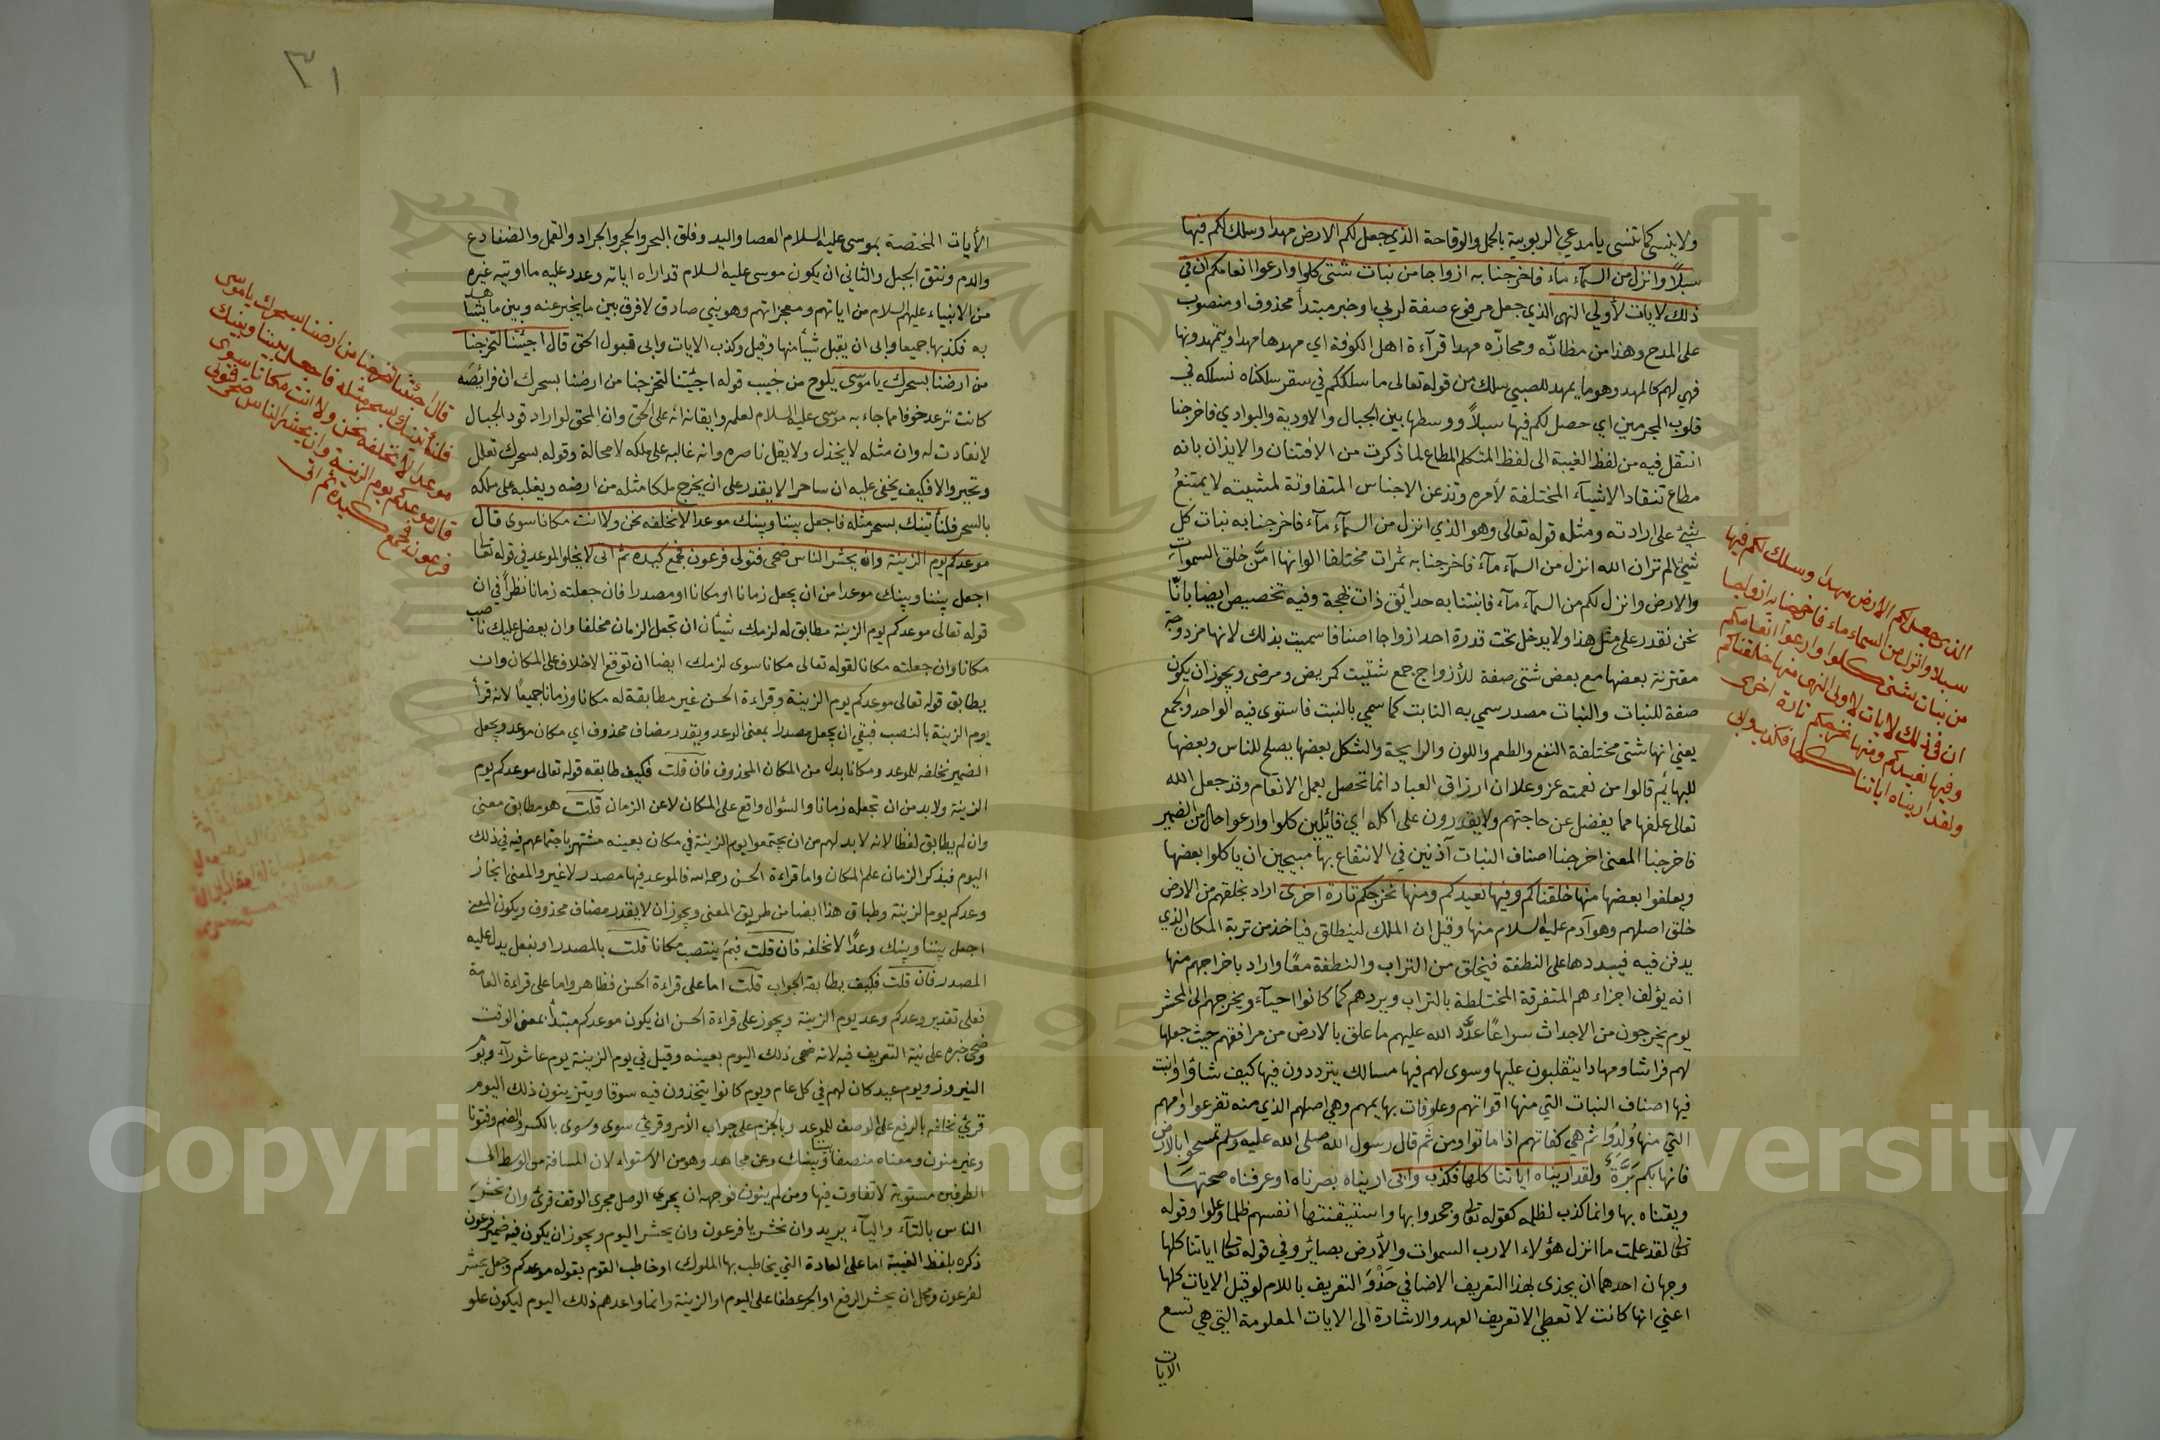 ولا ينسى كما تنسى يا مدعي الربوبية بالجهل والوقاحة الذي جعل لكم الارض مهدا وسلك لكم فيها
سبلا وانزل من السمآء مآء فاخرجنا به ازواجا من نبات شتى كلوا وارعوا انعامكم ان في
ذلك لايات لأولي النهى الذي جعل مرفوع صفة لربي او خبر مبتدأ محذوف او منصوب
على المدح وهذا من مظانّه ومجازّه مهدا قرآءة اهل الكوفة اي مهدها مهدا ويتمهدونها
فهي لهم كالمهد وهو ما يمهد للصبي سلك من قوله تعالى ما سلككم في سقر سلكناه نسلكه في
قلوب المجرمين اي حصل لكم فيها سبلاً ووسطها بين الجبال والاودية والبوادي فاخرجنا
انتقل فيه من لفظ الغيبة الى لفظ المتكلم المطاع لما ذكرت من الافتنان والايذان بانه
مطاع تنقاد الاشيآء المختلفة لأمره وتذعن الاجناس المتفاوتة لمشيته لا يمتنع
شيئ على ارادته ومثله قوله تعالى وهو الذي انزل من السمآء مآء فاخرجنا به نبات كل
شيئ الم تر ان الله انزل من السمآء مآءً فاخرجنا به ثمرات مختلفا الوانها امّن خلق السموات
والارض وانزل لكم من السمآء مآء فانبتنا به حدائق ذات بهجة وفيه تخصيص ايضا بانّا
نحن نقدر على مثل هذا ولا يدخل تحت قدرة احد ازواجا اصنافا سميت بذلك لانها مزدوجة
مقترنة بعضها مع بعض شتى صفة للأزواج جمع شتيت كمريض ومرضى ويجوز ان يكون
صفة للنبات والنبات مصدر سمي به النابت كما سمي بالنبت فاستوى فيه الواحد والجمع
يعني انها شتى مختلفة النفع والطعم واللون والرايحة والشكل بعضها يصلح للناس وبعضها
للبهائم قالوا من نعمته عز وعلا ان ارزاق العباد انما تحصل بعمل الانعام وقد جعل الله
تعالى علفها مما يفضل عن حاجتهم ولا يقدرون على اكله اي قائلين كلوا وارعوا حال من الضمير
فاخرجنا المعنى اخرجنا اصناف النبات آذنين في الانتفاع بها مبيحين ان ياكلوا بعضها
ويعلفوا بعضها منها خلقناكم وفيها نعيدكم ومنها نخرجكم تارة اخرى اراد بخلقهم من الارض
خلق اصلهم وهو آدم عليه السلام منها وقيل ان الملك لينطلق فياخذ من تربة المكان الذي
يدفن فيه فيبددها على النطفة فيخلق من التراب والنطفة معًا واراد باخراجهم منها
انه يؤلف اجزاءهم المتفرقة المختلطة بالتراب ويردهم كما كانوا احيآء ويخرجهم الى المحشر
يوم يخرجون من الاجداث سراعًا عدّد الله عليهم ما علق بالارض من مرافقهم حيث جعلها
لهم فراشا ومهادا ينقلبون عليها وسوى لهم فيها مسالك يترددون فيها كيف شاؤا وانبت
فيها اصناف النبات التي منها اقواتهم وعلوفات بهايمهم وهي اصلهم الذي منه تفرعوا وامهم
التي منها وُلِدُوا ثم هي كفاتهم اذا ماتوا ومن ثَم قال رسول الله صلى الله عليه وسلم تمسحوا بالارض
فانها بكم بَرَّةٌ ولقد اريناه اياتنا كلها فكذب وابى اريناه بصرناه او عرفناه صحتها
ويقناه بها وانما كذب لظلمه كقوله تعالى وجحدوا بها واستيقنتها انفسهم ظلما وعلوا وقوله
تعالى لقد علمت ما انزل هؤلاء الا رب السموات والأرض بصائر وفي قوله تعالى اياتنا كلها
وجهان احدهما ان يحذى بهذا التعريف الاضافي حَذْوَ التعريف باللام لو قيل الايات كلها
اعني انها كانت لا تعطي الا تعريف العهد والاشارة الى الايات المعلومة التي هي تسع
الايات
الذي جعل لكم الأرض مهدا وسلك لكم فيها
سبلا وانزل من السماء ماء فاخرجنا به ازواجا
من نبات شتى كلوا وارعوا انعامكم
ان في ذلك لايات لاولى النهى منها خلقناكم
وفيها نعيدكم ومنها نخرجكم تارة اخرى
ولقد اريناه اياتنا كلها فكذب وابى
٣١
الأيات المختصة بموسى عليه السلام العصا واليد وفلق البحر والحجر والجراد والقمل والضفادع
والدم ونتق الجبل والثاني ان يكون موسى عليه السلام قد اراه اياته وعدد عليه ما اوتيه غيره
من الانبياء عليهم السلام من اياتهم ومعجزاتهم وهو نبي صادق لا فرق بين ما يخبر عنه وبين ما يشاهد
به فكذبها جميعا وابى ان يقبل شيأ منها وقيل وكذب الايات وابى قبول الحق قال اجئتنا لتخرجنا
من ارضنا بسحرك يا موسى يلوح من جيب قوله اجئتنا لتخرجنا من ارضنا بسحرك ان فرائصه
كانت ترعد خوفا مما جاء به موسى عليه السلام لعلمه وايقانه انه على الحق وان المحق لو اراد قود الجبال
لانقادت له وان مثله لا يخذل ولا يقل ناصره وانه غالبه على ملكه لا محالة وقوله بسحرك تعلل
وتحير والا فكيف يخفى عليه ان ساحرا لا يقدر على ان يخرج ملكا مثله من ارضه ويغلبه على ملكه
بالسحر فلنأتينك بسحر مثله فاجعل بيننا وبينك موعدا لا نخلفه نحن ولا انت مكانا سوى قال
موعدكم يوم الزينة وان يحشر الناس ضحى فتولى فرعون فجمع كيده ثم اتى لا يخلو الموعد في قوله تعالى
اجعل بيننا وبينك موعدا من ان يجعل زمانا او مكانا او مصدرا فان جعلته زمانا نظراً في ان
قوله تعالى موعدكم يوم الزينة مطابق له لزمك شيئان ان تجعل الزمان مخلفا وان يعضل عليك ناصب
مكانا وان جعلته مكانا لقوله تعالى مكانا سوى لزمك ايضا ان توقع الاخلاف على المكان وان
يطابق قوله تعالى موعدكم يوم الزينة وقراءة الحسن غير مطابقة له مكانا وزمانا جميعًا لانه قرأ
يوم الزينة بالنصب فبقي ان يجعل مصدرا بمعنى الوعد ويقدر مضاف محذوف اي مكان موعد ويجعل
الضمير نخلفه للموعد ومكانا بدل من المكان المحذوف فان قلت فكيف طابقه قوله تعالى موعدكم يوم
الزينة ولا بد من ان تجعله زمانا والسؤال واقع على المكان لا عن الزمان قلت هو مطابق معنى
وان لم يطابق لفظا لانه لا بد لهم من ان يجتمعوا يوم الزينة في مكان بعينه مشتهر باجتماعهم فيه في ذلك
اليوم فبذكر الزمان علم المكان واما قراءة الحسن رحمه الله فالموعد فيها مصدر لا غير والمعنى انجاز
وعدكم يوم الزينة وطباق هذا ايضا من طريق المعنى ويجوز ان لا يقدر مضاف محذوف ويكون المعنى
اجعل بيننا وبينك وعدًا لا نخلفه فان قلت فبمَ ينتصب مكانا قلت بالمصدر او بفعل يدل عليه
المصدر فان قلت فكيف يطابقه الجواب قلت اما على قراءة الحسن فظاهر واما على قراءة العامة
فعلى تقدير وعدكم وعد يوم الزينة ويجوز على قراءة الحسن ان يكون موعدكم مبتدأ بمعنى الوقت
وضحى خبره على نية التعريف فيه لانه ضحى ذلك اليوم بعينه وقيل في يوم الزينة يوم عاشورآء ويوم
النيروز ويوم عيد كان لهم في كل عام ويوم كانوا يتخذون فيه سوقا ويتزينون ذلك اليوم
قرئ نخلفه بالرفع على الوصف للموعد وبالجزم على جواب الأمر وقرئ سوى وسوى بالكسر والضم ومنونا
وغير منون ومعناه منصفا بيننا وبينك وعن مجاهد وهو من الاستواء لان المسافة من الوسط الى
الطرفين مستوية لا تفاوت فيها ومن لم ينون فوجهه ان يجري الوصل مجرى الوقف قرئ وان تحشر
الناس بالتآء واليآء يريد وان تحشر يا فرعون وان يحشر اليوم ويجوز ان يكون فيه ضمير فرعون
ذكره بلفظ الغيبة اما على العادة التي يخاطب بها الملوك او خاطب القوم بقوله موعدكم وجعل يحشر
لفرعون ومحل ان يحشر الرفع او الجر عطفا على اليوم او الزينة وانما واعدهم ذلك اليوم ليكون علو
قال اجئتنا لتخرجنا من ارضنا بسحرك يا موسى
فلنأتينك بسحر مثله فاجعل بيننا وبينك
موعدا لا نخلفه نحن ولا انت مكانا سوى
قال موعدكم يوم الزينة وان يحشر الناس ضحى فتولى
فرعون فجمع كيده ثم اتى
Copyright © King Saud University